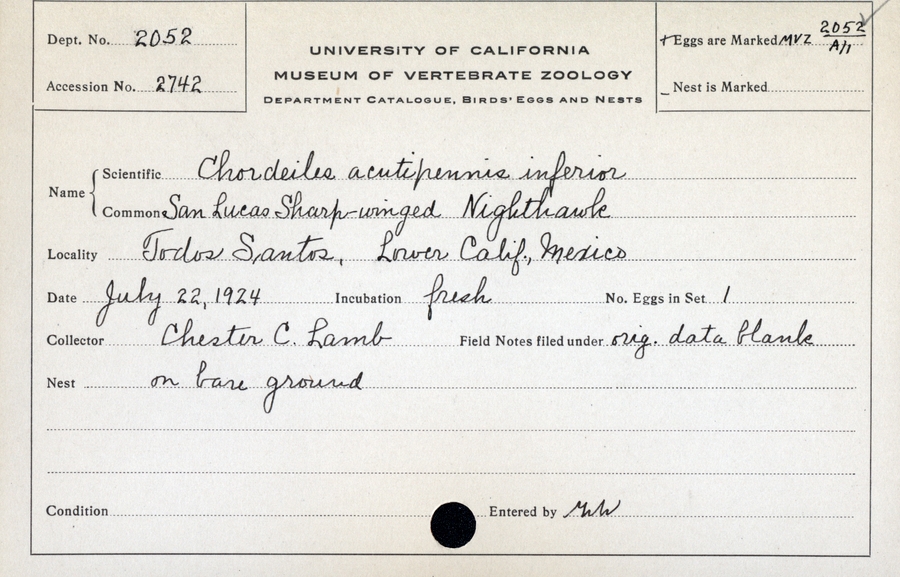 Dept. No. 2052
Accession No. 2742
UNIVERSITY OF CALIFORNIA
MUSEUM OF VERTEBRATE ZOOLOGY
DEPARTMENT CATALOGUE, BIRDS' EGGS AND NESTS
+ Eggs are Marked MVZ 2052 A/1
– Nest is Marked
Name
Scientific Chordeiles acutipennis inferior
Common San Lucas Sharp-winged Nighthawk
Locality Todos Santos, Lower Calif., Mexico
Date July 22, 1924 Incubation fresh No. Eggs in Set 1
Collector Chester C. Lamb Field Notes filed under orig. data blank
Nest on bare ground
Condition Entered by